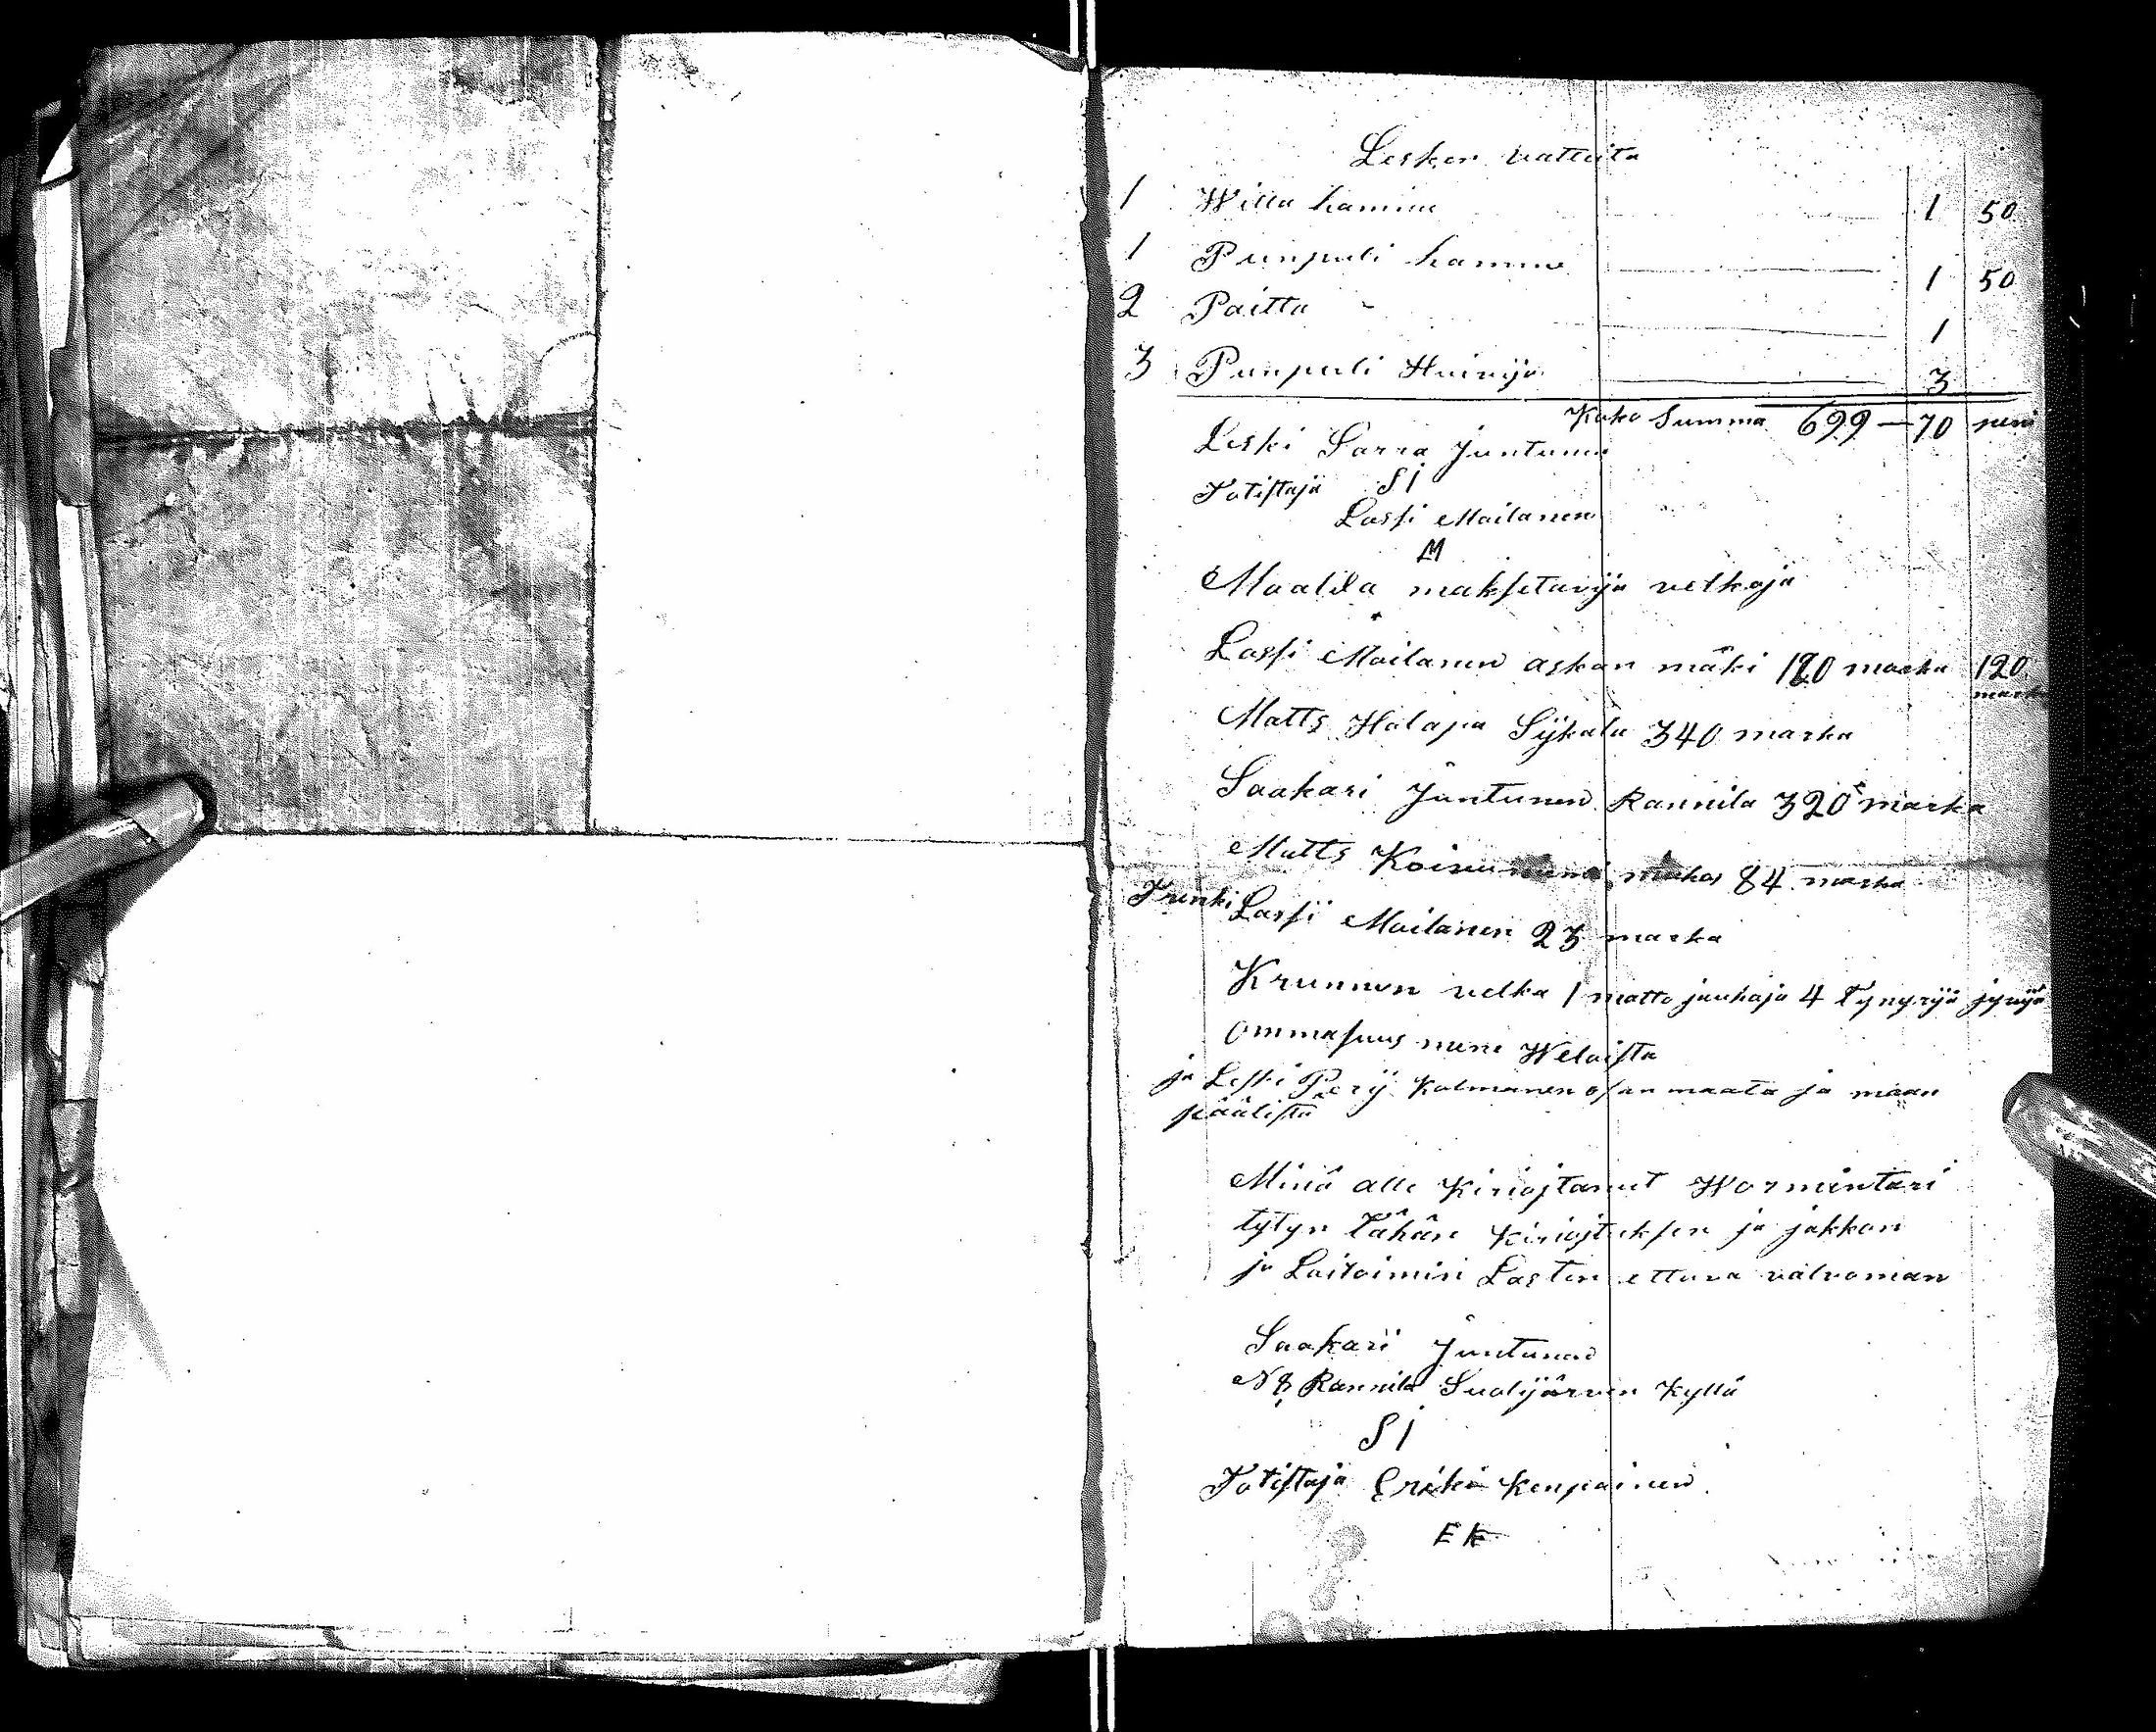 Lesken vatteita
1 Willa hamme 1 50
1 Punpuli hamme 1 50
2 Paitta 1
3 Punpuli Huivija 3
Koko Summa 699 — 70 peni
Leski Sarra Juntunen
Totistaja SJ
Lassi Moilanen
M
Maalda maksetavija velkoja
Lassi Moilanen askan mäki 120 marka 120
marka
Matts Halapa Sÿkala 340 marka
Saakari Juntunen Rannila 320 marka
Matts 84 marka
Lassi Moilanen 23 marka
Krunnon velka 1 matto jauhoja 4 Tynyrijä jyvijä
ommasuus mene Weloista
ja Leski Perij Kolmanen osan maata ja maan
päälistä
Minä alle Kiriojtanut Wormüntari
tytyn tähän Kiriojtuksen ja jakkon
ja Laitoimin Lasten ettuva valvoman
Saakari Juntunen
N 8 Rannila Suolijärven Kyllä
SJ
Totistaja Erikki Kenpainen
EK